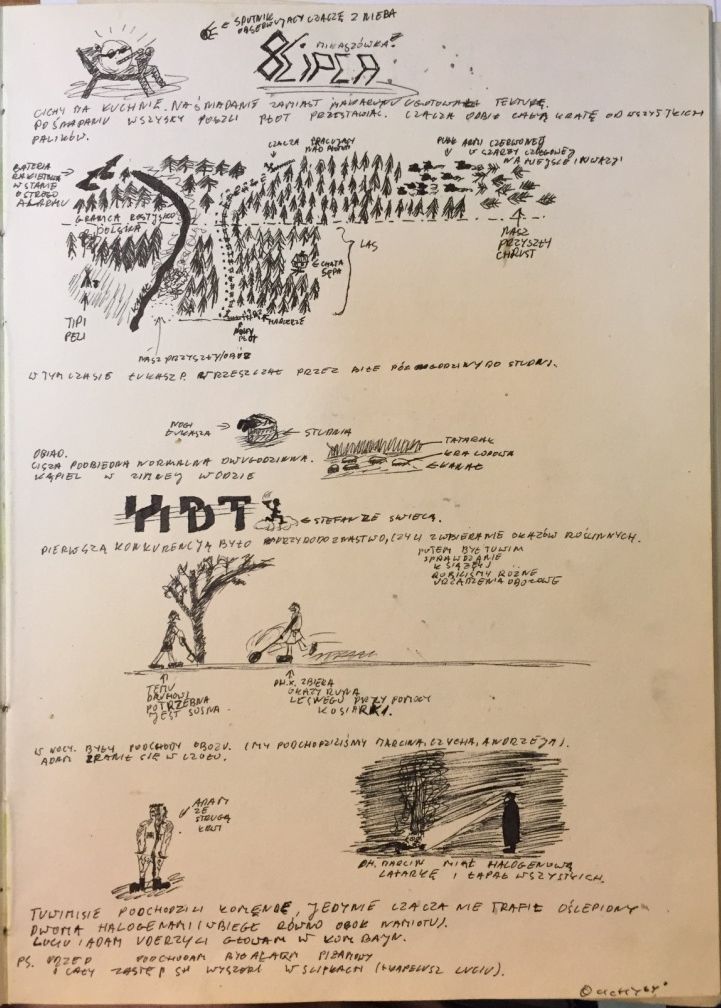 ← SPUTNIK
OBSERWUJĄCY CZACZĘ Z NIEBA
8 LIPCA
MIKASZÓWKA?
CICHY MA KUCHNIĘ. NA ŚNIADANIE ZAMIAST MAKARONU UGOTOWAŁ TEKTURĘ.
PO ŚNIADANIU WSZYSCY POSZLI PŁOT PRZESTAWIAĆ. CZACZA ODBIŁ CAŁĄ KRATĘ OD WSZYSTKICH
PALIKÓW.
BATERIA
RAKIETOWA
W STANIE
OSTREGO
ALARMU
CZACZA PRACUJĄCY
NAD PŁOTEM
PUŁK ARMII CZERWONEJ
W SZARŻY CZOŁGOWEJ
NA MIEJSCE INWAZJI
GRANICA ROSYJSKO
POLSKA
NASZ
PRZYSZŁY
CHRUST
LAS
CHATA
SĘPA
TIPI
PELI
NOWY
PŁOT
NASZ PRZYSZŁY OBÓZ
W TYM CZASIE ŁUKASZ P. WRZESZCZAŁ PRZEZ BITE PÓŁ GODZINY DO STUDNI.
NOGI
ŁUKASZA
STUDNIA
TATARAK
KANAŁ
OBIAD.
CISZA POOBIEDNA NORMALNA DWUGODZINNA.
KĄPIEL W ZIMNEJ WODZIE
HDT
← STEFAN ZE ŚWIECĄ.
PIERWSZĄ KONKURENCJĄ BYŁO PRZYRODOZNASTWO, CZYLI ZWBIERANIE OKAZÓW ROŚLINNYCH.
POTEM BYŁ TUWIM
SPRAWDZANIE
KSIĄŻEJ
ROBILIŚMY RÓŻNE
URZĄDZENIA OBOZOWE
TEMU
DRUHOWI
POTRZEBNA
JEST SOSNA.
DH. X. ZBIERA
OKAZY RUNA
LEŚNEGO PRZY POMOCY
KOSIARKI.
W NOCY. BYŁY PODCHODY OBOZU. (MY PODCHODZILIŚMY MARCINA, CZYCHA, ANDRZEJA).
ADAM ZRANIŁ SIĘ W CZOŁO.
ADAM
ZE
STRUGĄ
KRWI
DH. MARCIN MIAŁ HALOGENOWĄ
LATARKĘ I ŁAPAŁ WSZYSTKICH.
TUWIMISIE PODCHODZILI KOMENDĘ, JEDYNIE CZACZA NIE TRAFIŁ OŚLEPIONY
DWOMA HALOGENAMI (WBIEGŁ RÓWNO OBOK NAMIOTU).
LUCIU I ADAM UDERZYLI GŁOWAMI W KOMBAJN.
PS. PRZED PODCHODAMI BYŁ ALARM PIŻAMOWY
I CAŁY ZASTĘP SH WYSZEDŁ W SLIPKACH (+ KAPELUSZ LUCIU).
© CICHY BY'